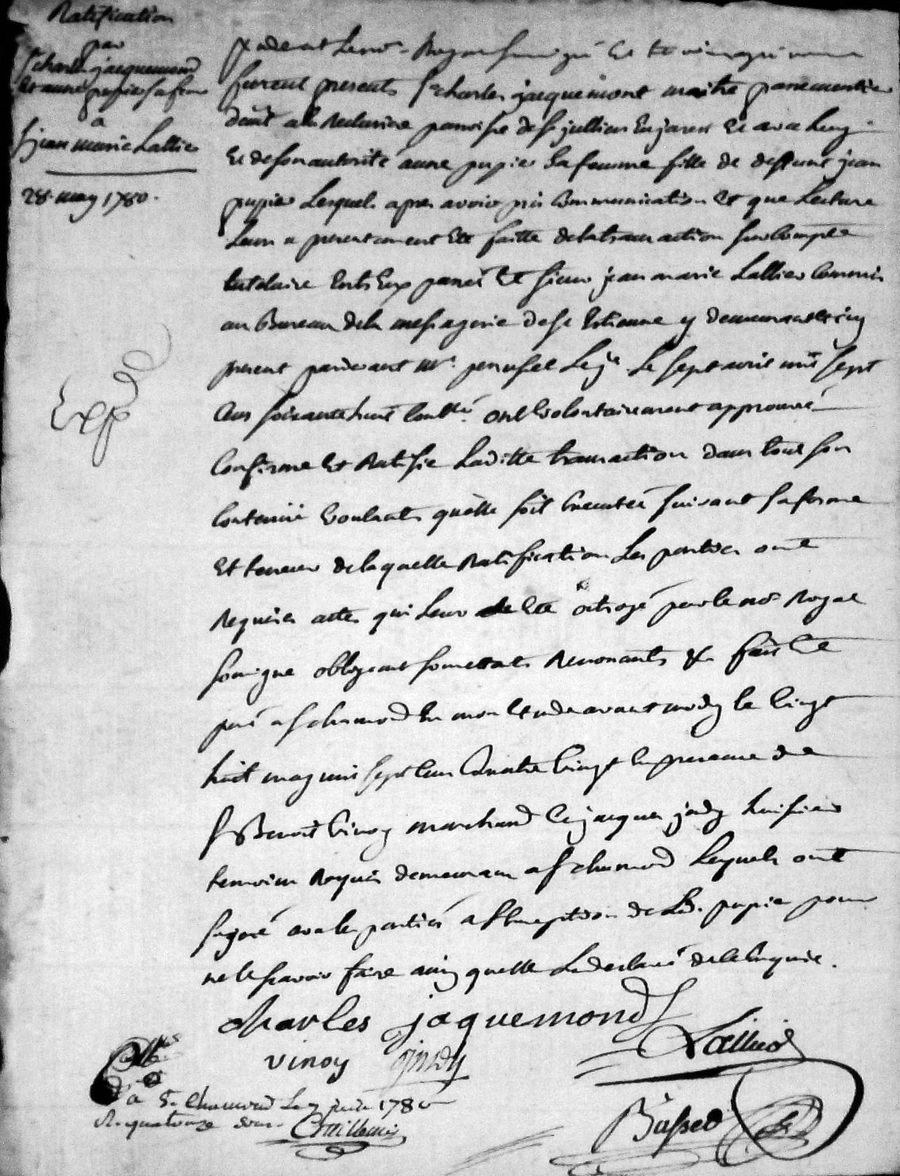 Ratification
par
Sr charles jacquemond
et anne pupier sa femme
a
Sr jean marie Lallier
28 may 1780.
Exp
pardevant Le no.re Royal soussigné Et temoins
furent presents Sr charles jacquemont maitre passementier
demt a la paroisse de St jullien En jarest Et avec luy
Et de son autorité anne pupier sa femme fille de deffunt jean
pupier Lesquels apres avoir pris Communication Et que Lecture
Leur a presentement Eté faitte de la transaction sur Compte
tutelaire Entr Eux passé Et sieur jean marie Lallier Commis
au Bureau de la messagerie de St Etienne y demeurant Et icy
present pardevant Mr. Le sept avril mil sept
Cens soixante huit ont volontairement approuvé
Confirmé Et Ratifié Laditte transaction dans tout son
Contenu voulants quelle soit Executée suivant sa forme
Et teneur de laquelle Ratification Les parties ont
Requis acte qui Leur Eté octroyé par le no.re Royal
soussigné obligeant soumettants Renonçants &c fait Et
passé a St chamond En mon Etude avant midy le vingt
huit may mil sept Cens quatre vingt En presence de
Sr Benoit vinoy marchand Et jacques jody huissier
temoins Requis demeurants a St chamond Lesquels ont
signé avec les parties a L'Exception de La d. pupier pour
ne le sçavoir faire ainsy quelle L a declaré de ce Enquise.
charles jaquemond
Lallier
vinoy jody
a St. Chamond Le 7 juin 1780
R. quatorze sous
Bussod